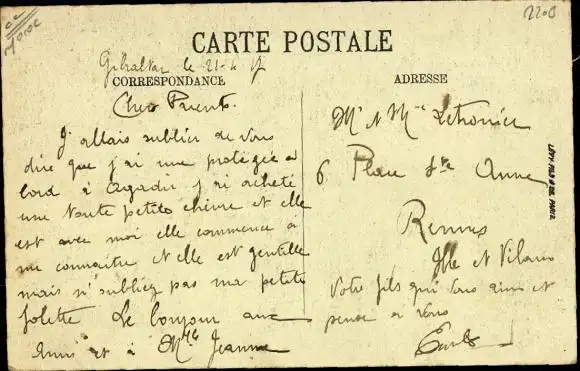 2203
Maroc
CARTE POSTALE
Gibraltar le 21-4 17
CORRESPONDANCE
ADRESSE
Chers Parents.
J'allais oublier de vous
dire que j'ai une protégée a
bord à Agadir j'ai acheté
une toute petite chèvre et elle
est avec moi elle commence à
me connaitre et elle est gentille
mais n'oubliez pas ma petite
folette Le bonjour aux
Amis et à Mlle Jeanne
Mr et Mme
6 Place Ste Anne
Rennes
Ille et Vilaine
Votre fils qui vous aime et
pense a vous
LÉVY FILS & CIE PARIS